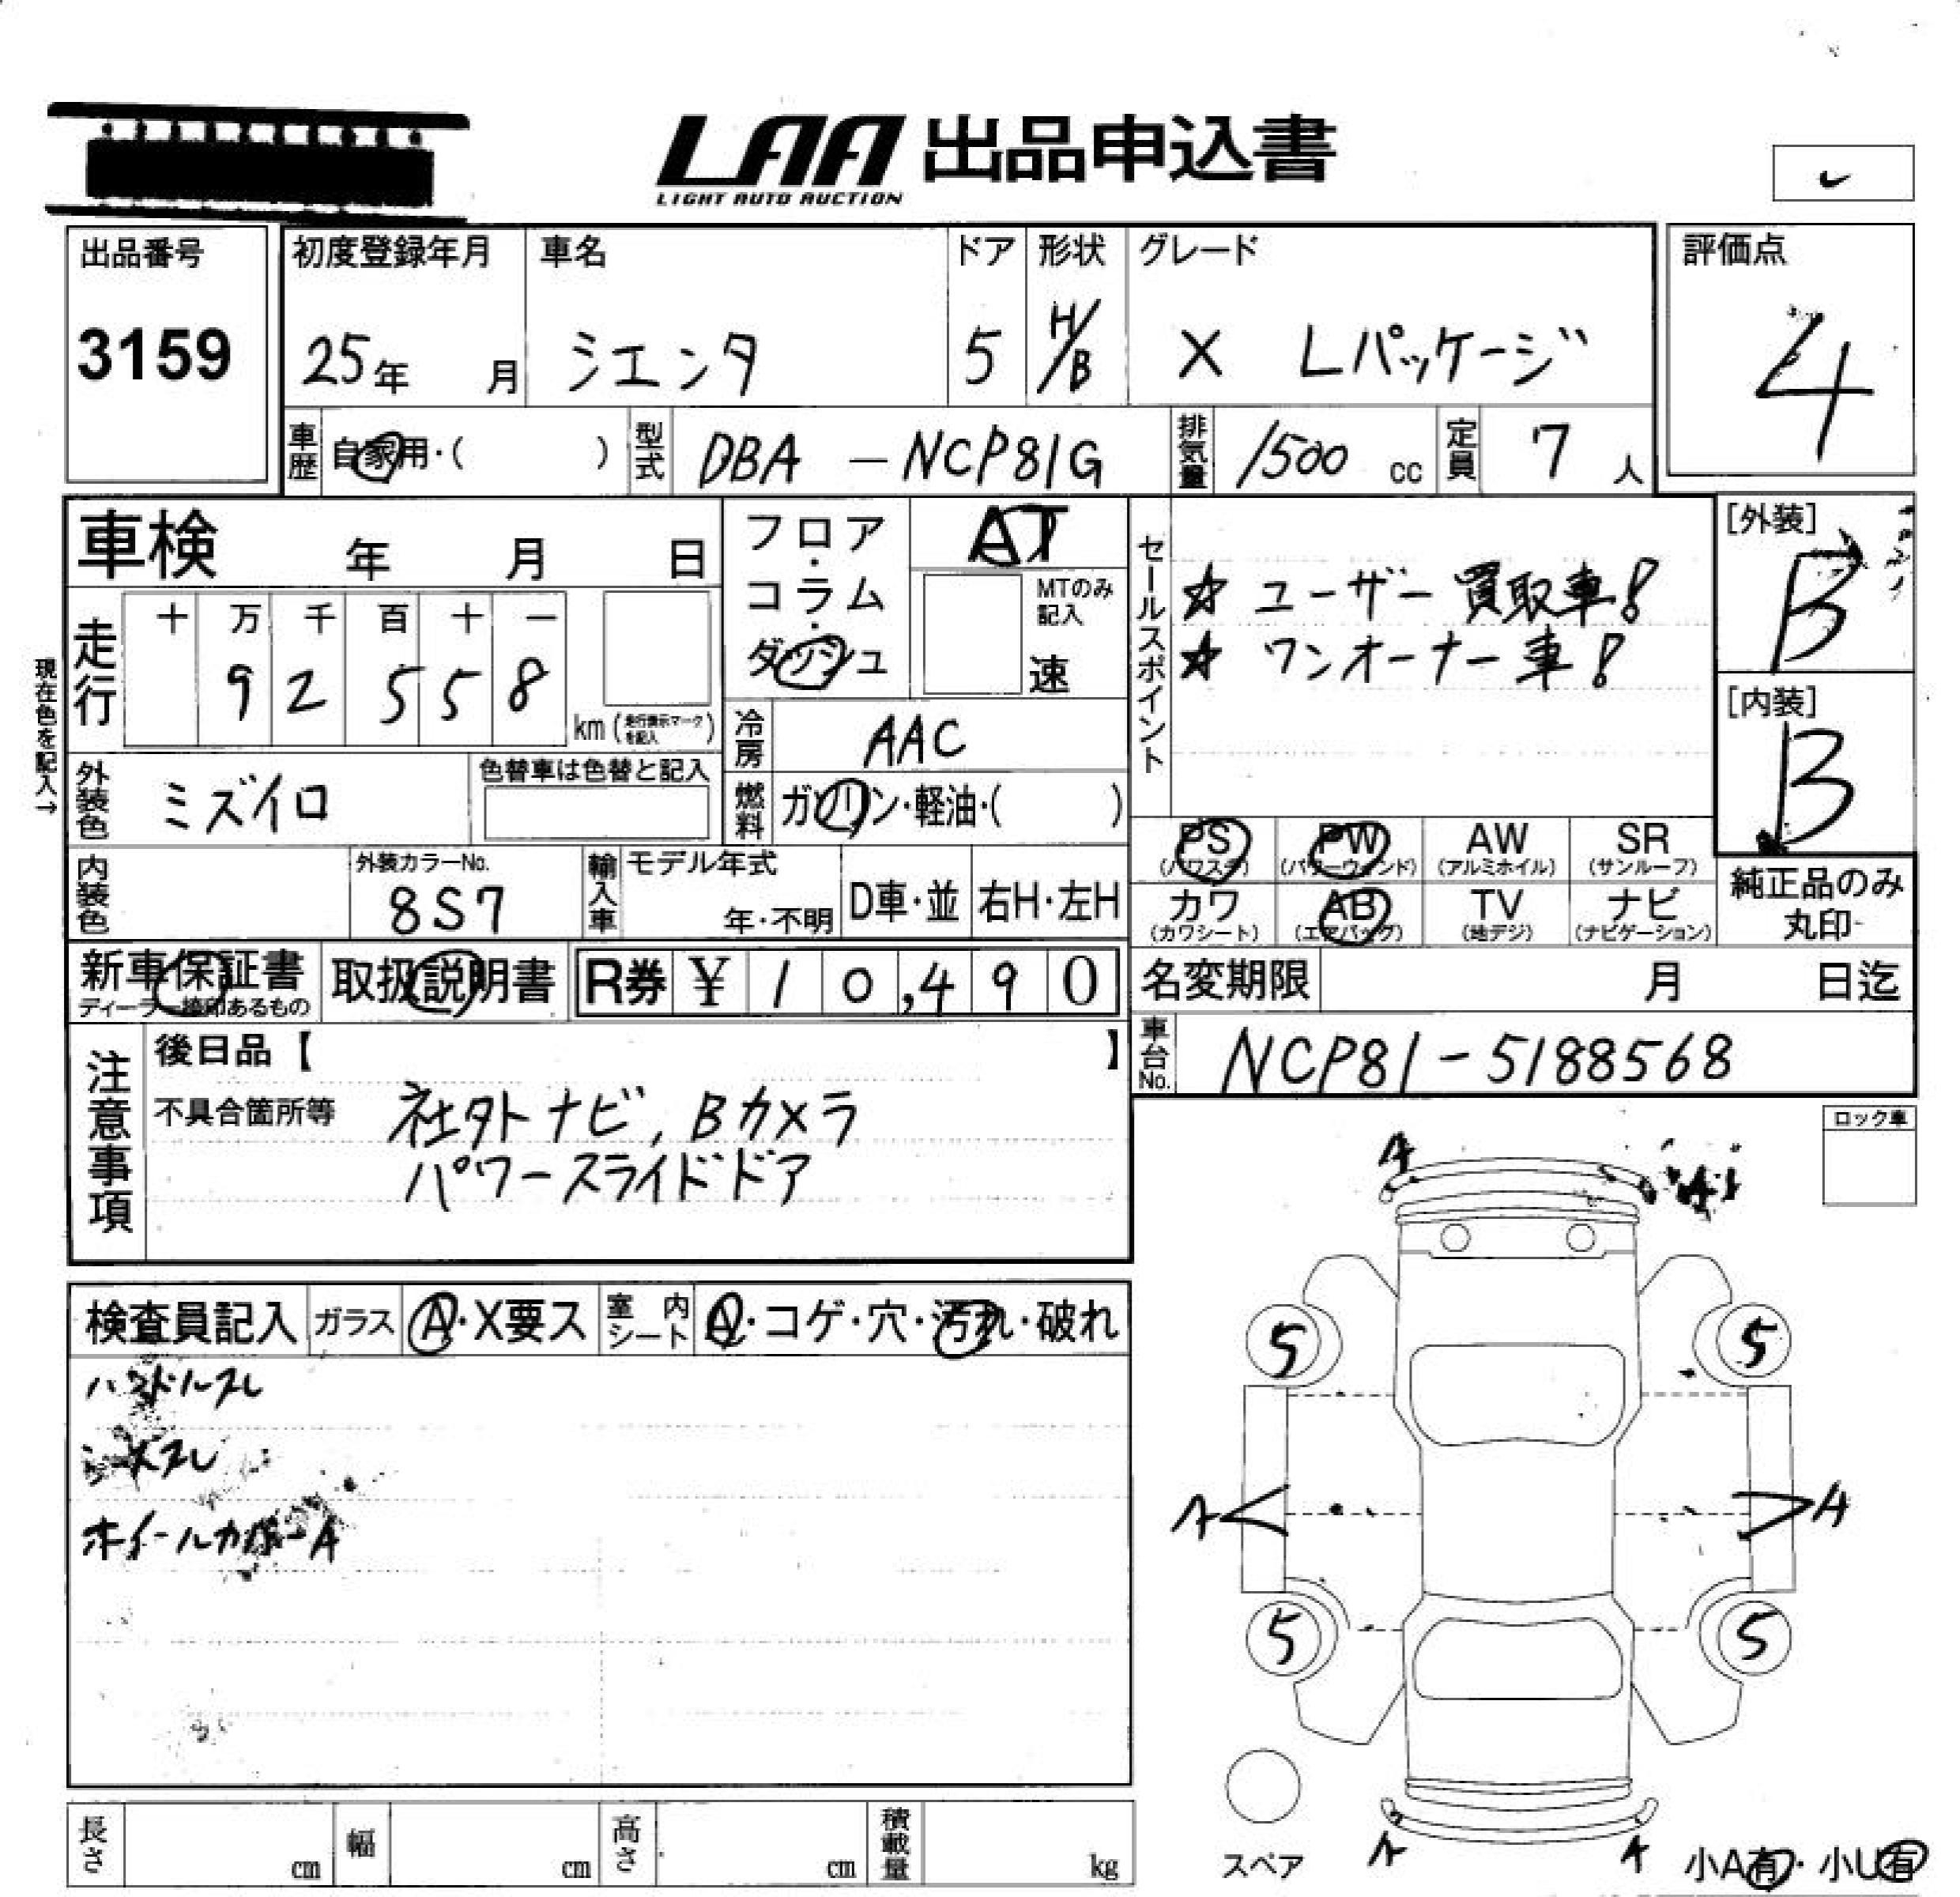 LAA 出品申込書
LIGHT AUTO AUCTION
出品番号
3159
初度登録年月
25年 月
車名
シエンタ
ドア
5
形状
H/B
グレード
X Lパッケージ
評価点
4
車歴 自家用・( )
型式 DBA - NCP81G
排気量 1500 cc
定員 7 人
車検 年 月 日
フロア・コラム・ダッシュ
AT
MTのみ記入
速
セールスポイント
☆ ユーザー買取車!
☆ ワンオーナー車!
[外装]
B
[内装]
B
現在色を記入→
走行
十 万 千 百 十 一
9 2 5 5 8
km (走行表示マークを記入)
冷房 AAC
外装色 ミズイロ
色替車は色替と記入
燃料 ガソリン・軽油・( )
PS (パワステ)
PW (パワーウィンド)
AW (アルミホイル)
SR (サンルーフ)
カワ (カワシート)
AB (エアバッグ)
TV (地デジ)
ナビ (ナビゲーション)
純正品のみ
丸印
内装色
外装カラーNo.
8S7
輸入車
モデル年式
年・不明
D車・並
右H・左H
新車保証書
ディーラー捺印あるもの
取扱説明書
R券 ¥ 10,490
名変期限 月 日迄
車台No. NCP81-5188568
注意事項
後日品【 】
不具合箇所等 社外ナビ, Bカメラ
パワースライドドア
ロック車
A
A1
検査員記入
ガラス A・X要ス
室内シート A・コゲ・穴・汚れ・破れ
ハンドルスレ
ホイールカバーA
5
5
A
A
5
5
スペア
A
A
小A有・小U有
長さ cm
幅 cm
高さ cm
積載量 kg